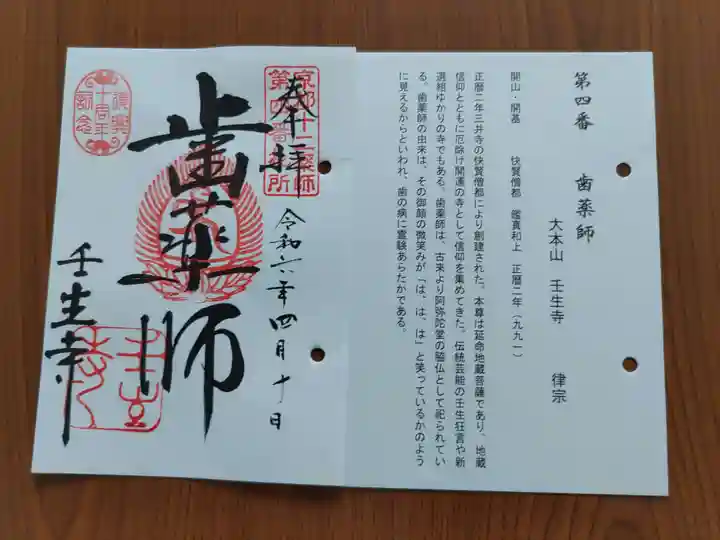 第四番 歯薬師
大本山 壬生寺 律宗
開山・開基 快賢僧都 鑑真和上 正暦二年（九九一）
正暦二年三井寺の快賢僧都により創建された。本尊は延命地蔵菩薩であり、地蔵
信仰とともに厄除け開運の寺として信仰を集めてきた。伝統芸能の壬生狂言や新
選組ゆかりの寺でもある。歯薬師は、古来より阿弥陀堂の脇仏として祀られてい
る。歯薬師の由来は、その御顔の微笑みが「は、は、は」と笑っているかのよう
に見えるからといわれ、歯の病に霊験あらたかである。
京都十二薬師
第四番札所
奉拝
令和六年四月十日
歯薬師
復興
十周年
記念
壬生寺